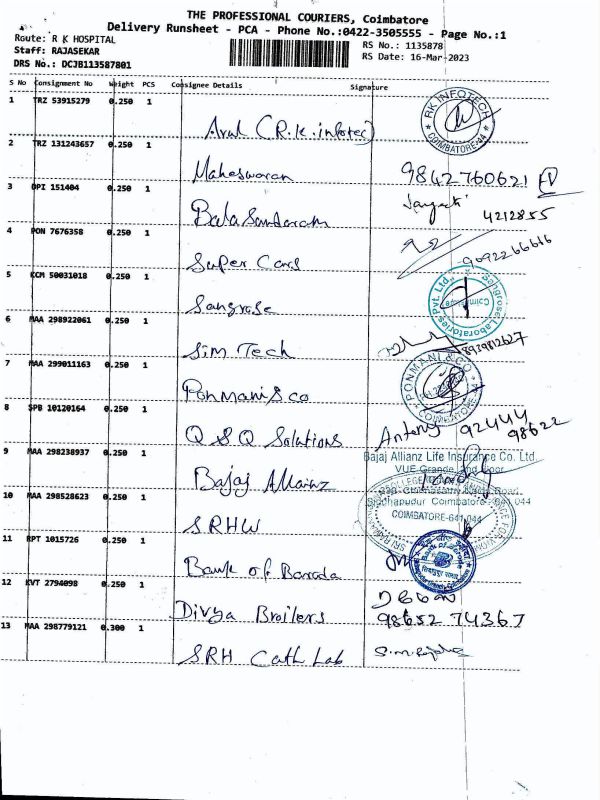 THE PROFESSIONAL COURIERS, Coimbatore
Delivery Runsheet - PCA - Phone No.:0422-3505555 - Page No.:1
Route: R K HOSPITAL
Staff: RAJASEKAR
DRS No.: DCJB113587801
RS No.: 1135878
RS Date: 16-Mar-2023
S No Consignment No Weight PCS Consignee Details Signature
1 TRZ 53915279 0.250 1 Arul (R.K. infotec)
RK INFOTECH COIMBATORE-44
2 TRZ 131243657 0.250 1 Maheswaran 9842760621
3 OPI 151404 0.250 1 Bala Sundaram 4212855
4 PON 7676358 0.250 1 Super Cars 9092266616
5 KCM 50031018 0.250 1 Sangrose
Sangrose Laboratories Pvt. Ltd., Coimbatore
6 MAA 298922061 0.250 1 Sim Tech 8939812627
7 MAA 299011163 0.250 1 Ponmani & co
PONMANI & CO COIMBATORE
8 SPB 10120164 0.250 1 Q S Q Solutions Antony 92444
98622
9 MAA 298238937 0.250 1 Bajaj Allianz
Bajaj Allianz Life Insurance Co. Ltd.
VUE Grande, 2nd Floor
Siddhapudur Coimbatore 641 044
10 MAA 298528623 0.250 1 SRHW
COIMBATORE-641 044
11 RPT 1015726 0.250 1 Bank of Baroda
12 KVT 2794098 0.250 1 Divya Broilers 98652 74367
13 MAA 298779121 0.300 1 SRH Cath Lab